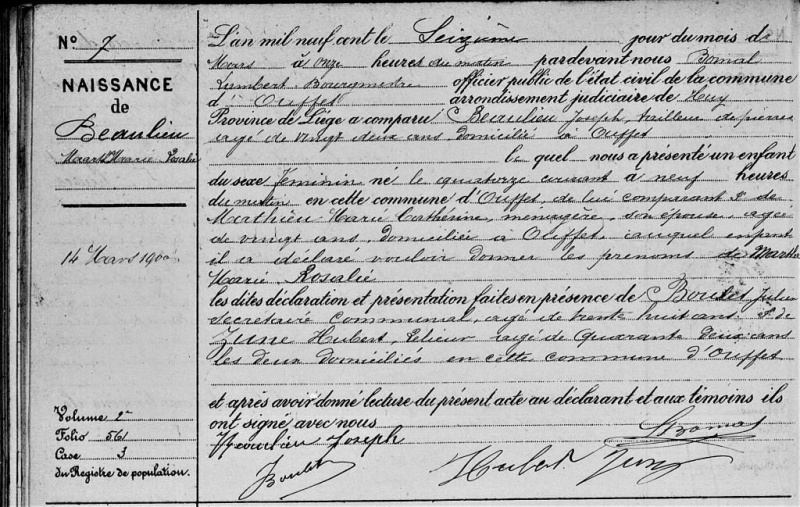 N° 7
NAISSANCE
de
Beaulieu
Marthe Marie Rosalie
14 Mars 1900
Volume 2e
Folio 561
Case 3
du Registre de population.
L'an mil neuf cent le Seizième jour du mois de
Mars à Onze heures du matin pardevant nous Bomal
Lambert Bourgmestre officier public de l'état civil de la commune
d'Ouffet arrondissement judiciaire de Huy
Province de Liége a comparu Beaulieu Joseph, tailleur de pierres
agé de vingt deux ans domicilié à Ouffet
le quel nous a présenté un enfant
du sexe féminin né le quatorze courant à neuf heures
du matin en cette commune d'Ouffet, de lui comparant & de
Mathieu Marie Catherine, ménagère, son épouse, agée
de vingt ans, domiciliée à Ouffet auquel enfant
il a déclaré vouloir donner les prénoms de Marthe
Marie Rosalie
les dites déclaration et présentation faites en présence de Boulet Julien
secrétaire communal, agé de trente huit ans & de
Zune Hubert, agé de quarante deux ans
les deux domiciliés en cette commune d'Ouffet
et après avoir donné lecture du présent acte au déclarant et aux témoins ils
ont signé avec nous
Beaulieu Joseph
LBomal
Boulet
Hubert Zune